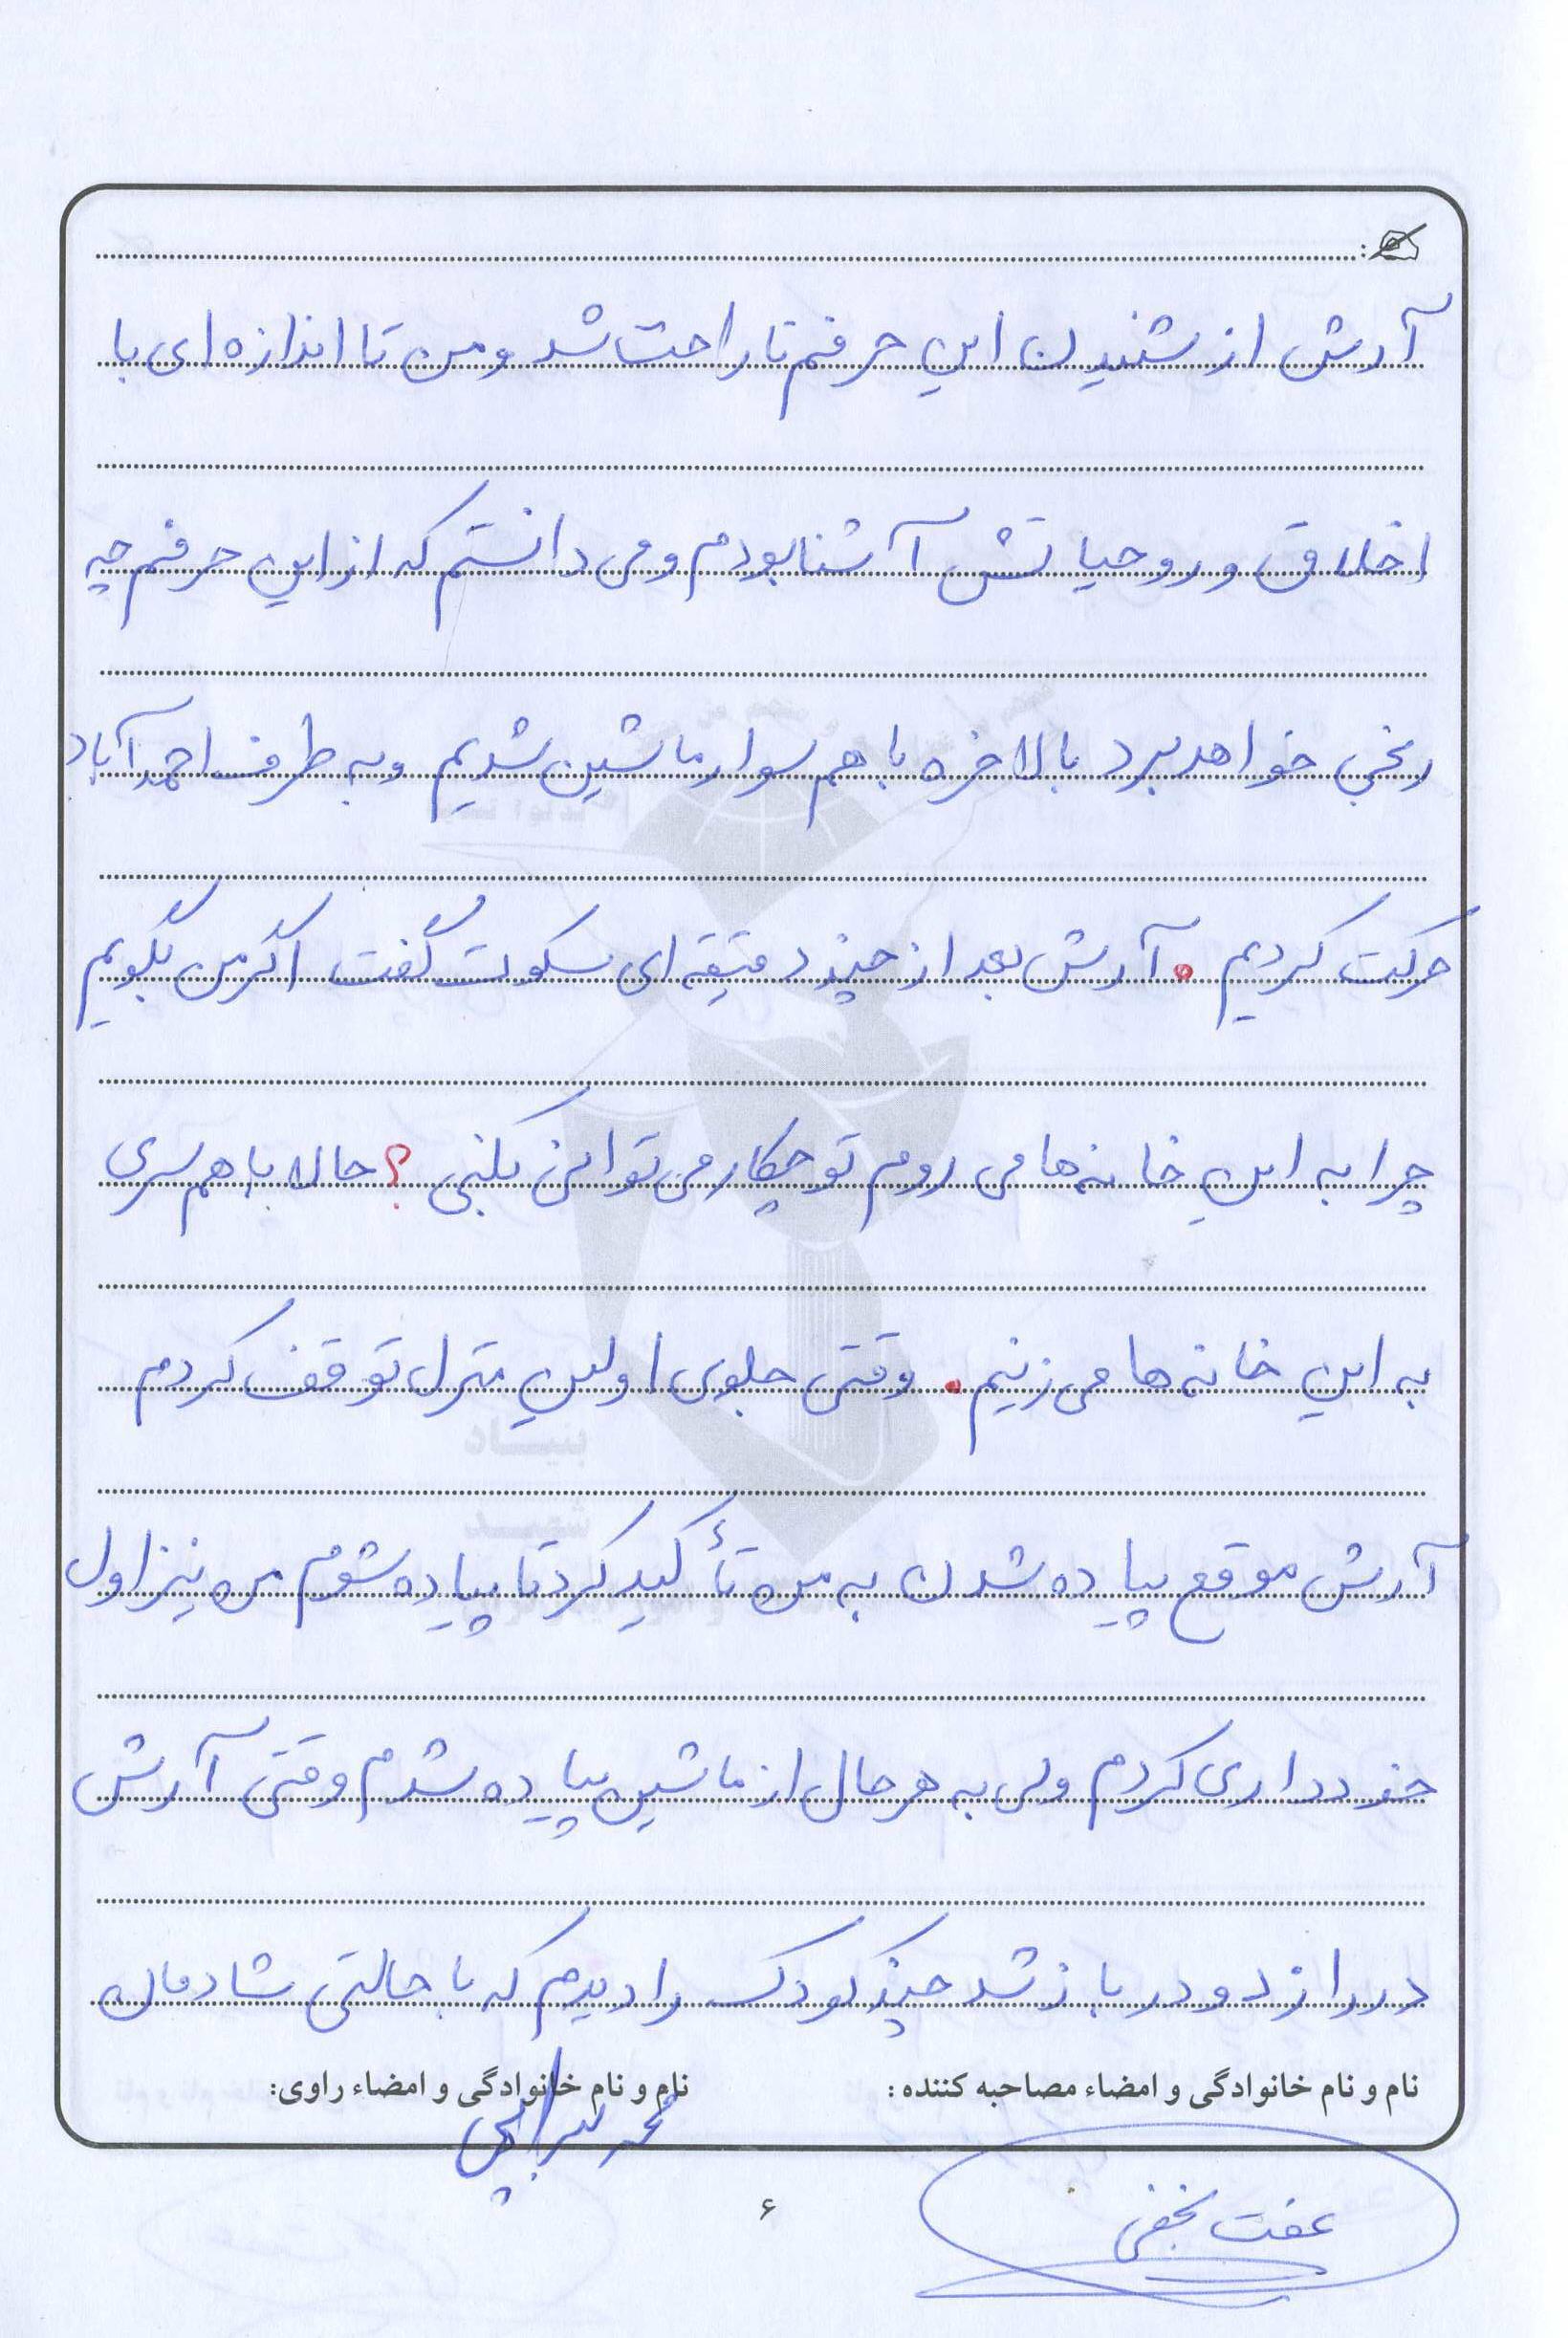 آرش از شنیدن این حرفم ناراحت شد و من تا اندازه ای با
اخلاق و روحیاتش آشنا بودم و می دانستم که از این حرفم چه
رنجی خواهد برد بالاخره با هم سوار ماشین شدیم و به طرف احمدآباد
حرکت کردیم . آرش بعد از چند دقیقه ای سکوت گفت اگر من بگویم
چرا به این خانه ها می روم تو چکار می توانی بکنی ؟ حالا با هم سری
به این خانه ها می زنیم . وقتی جلوی اولین منزل توقف کردم
آرش موقع پیاده شدن به من تأکید کرد تا پیاده شوم من نیز اول
خودداری کردم ولی به هر حال از ماشین پیاده شدم وقتی آرش
در را زد و در باز شد چند کودک را دیدم که با حالتی شادمان
نام و نام خانوادگی و امضاء مصاحبه کننده : نام و نام خانوادگی و امضاء راوی:
محمد
عفت نجفی
۶
بنیاد
شهید